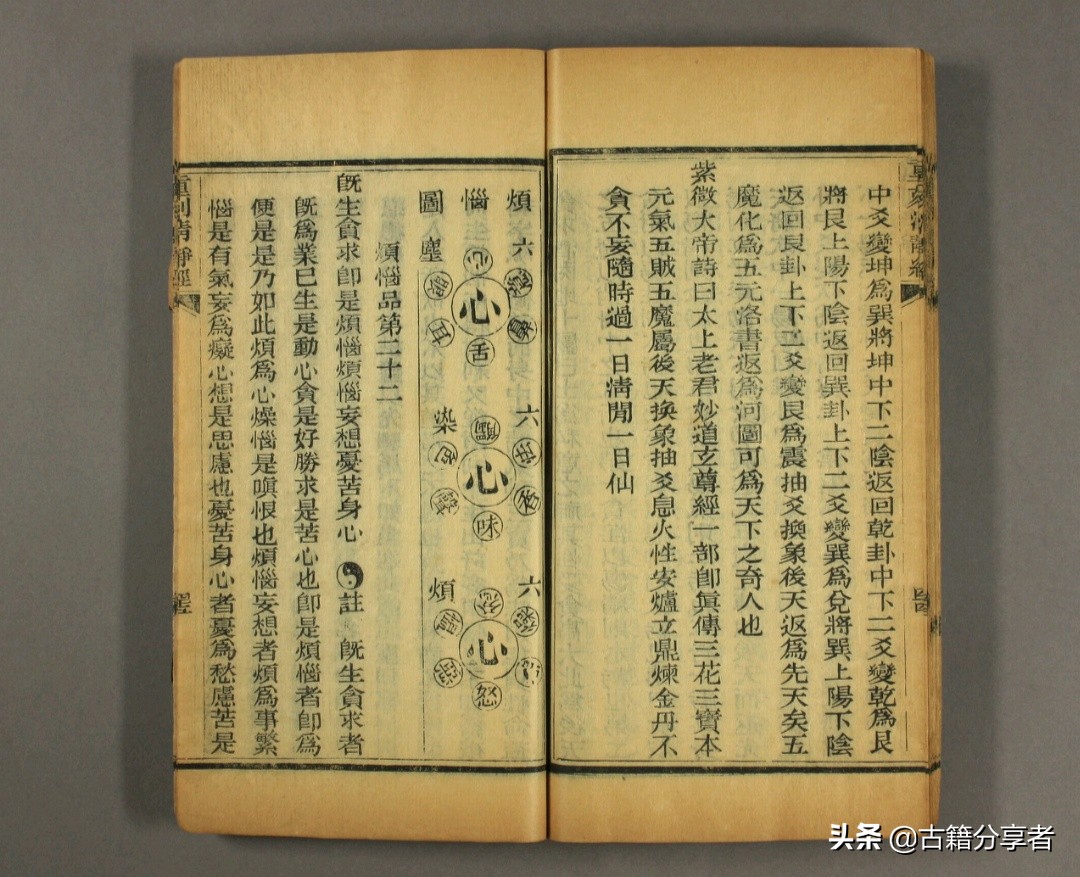 中爻變坤為巽將坤中下二陰返回乾卦中下二爻變乾為艮
將艮上陽下陰返回巽卦上下二爻變巽為兌將巽上陽下陰
返回艮卦上下二爻變艮為震抽爻換象後天返為先天矣五
魔化為五元洛書返為河圖可為天下之奇人也
紫微大帝詩曰太上老君妙道玄尊經一部卽眞傳三花三寶本
元氣五賊五魔屬後天換象抽爻息火性安爐立鼎煉金丹不
貪不妄隨時過一日清閒一日仙
煩惱圖
六塵
心
鼻
舌
心
六染
心
香
味
色
六煩
心
怒
煩惱品第二十二
旣生貪求卽是煩惱煩惱妄想憂苦身心
註
旣生貪求者
旣為業已生是動心貪是好勝求是苦心也卽是煩惱者卽為
便是是乃如此煩為心燥惱是嗔恨也煩惱妄想者煩為事繁
惱是有氣妄為癡心想是思慮也憂苦身心者憂為愁慮苦是
重刻清靜經
头条 @古籍分享者